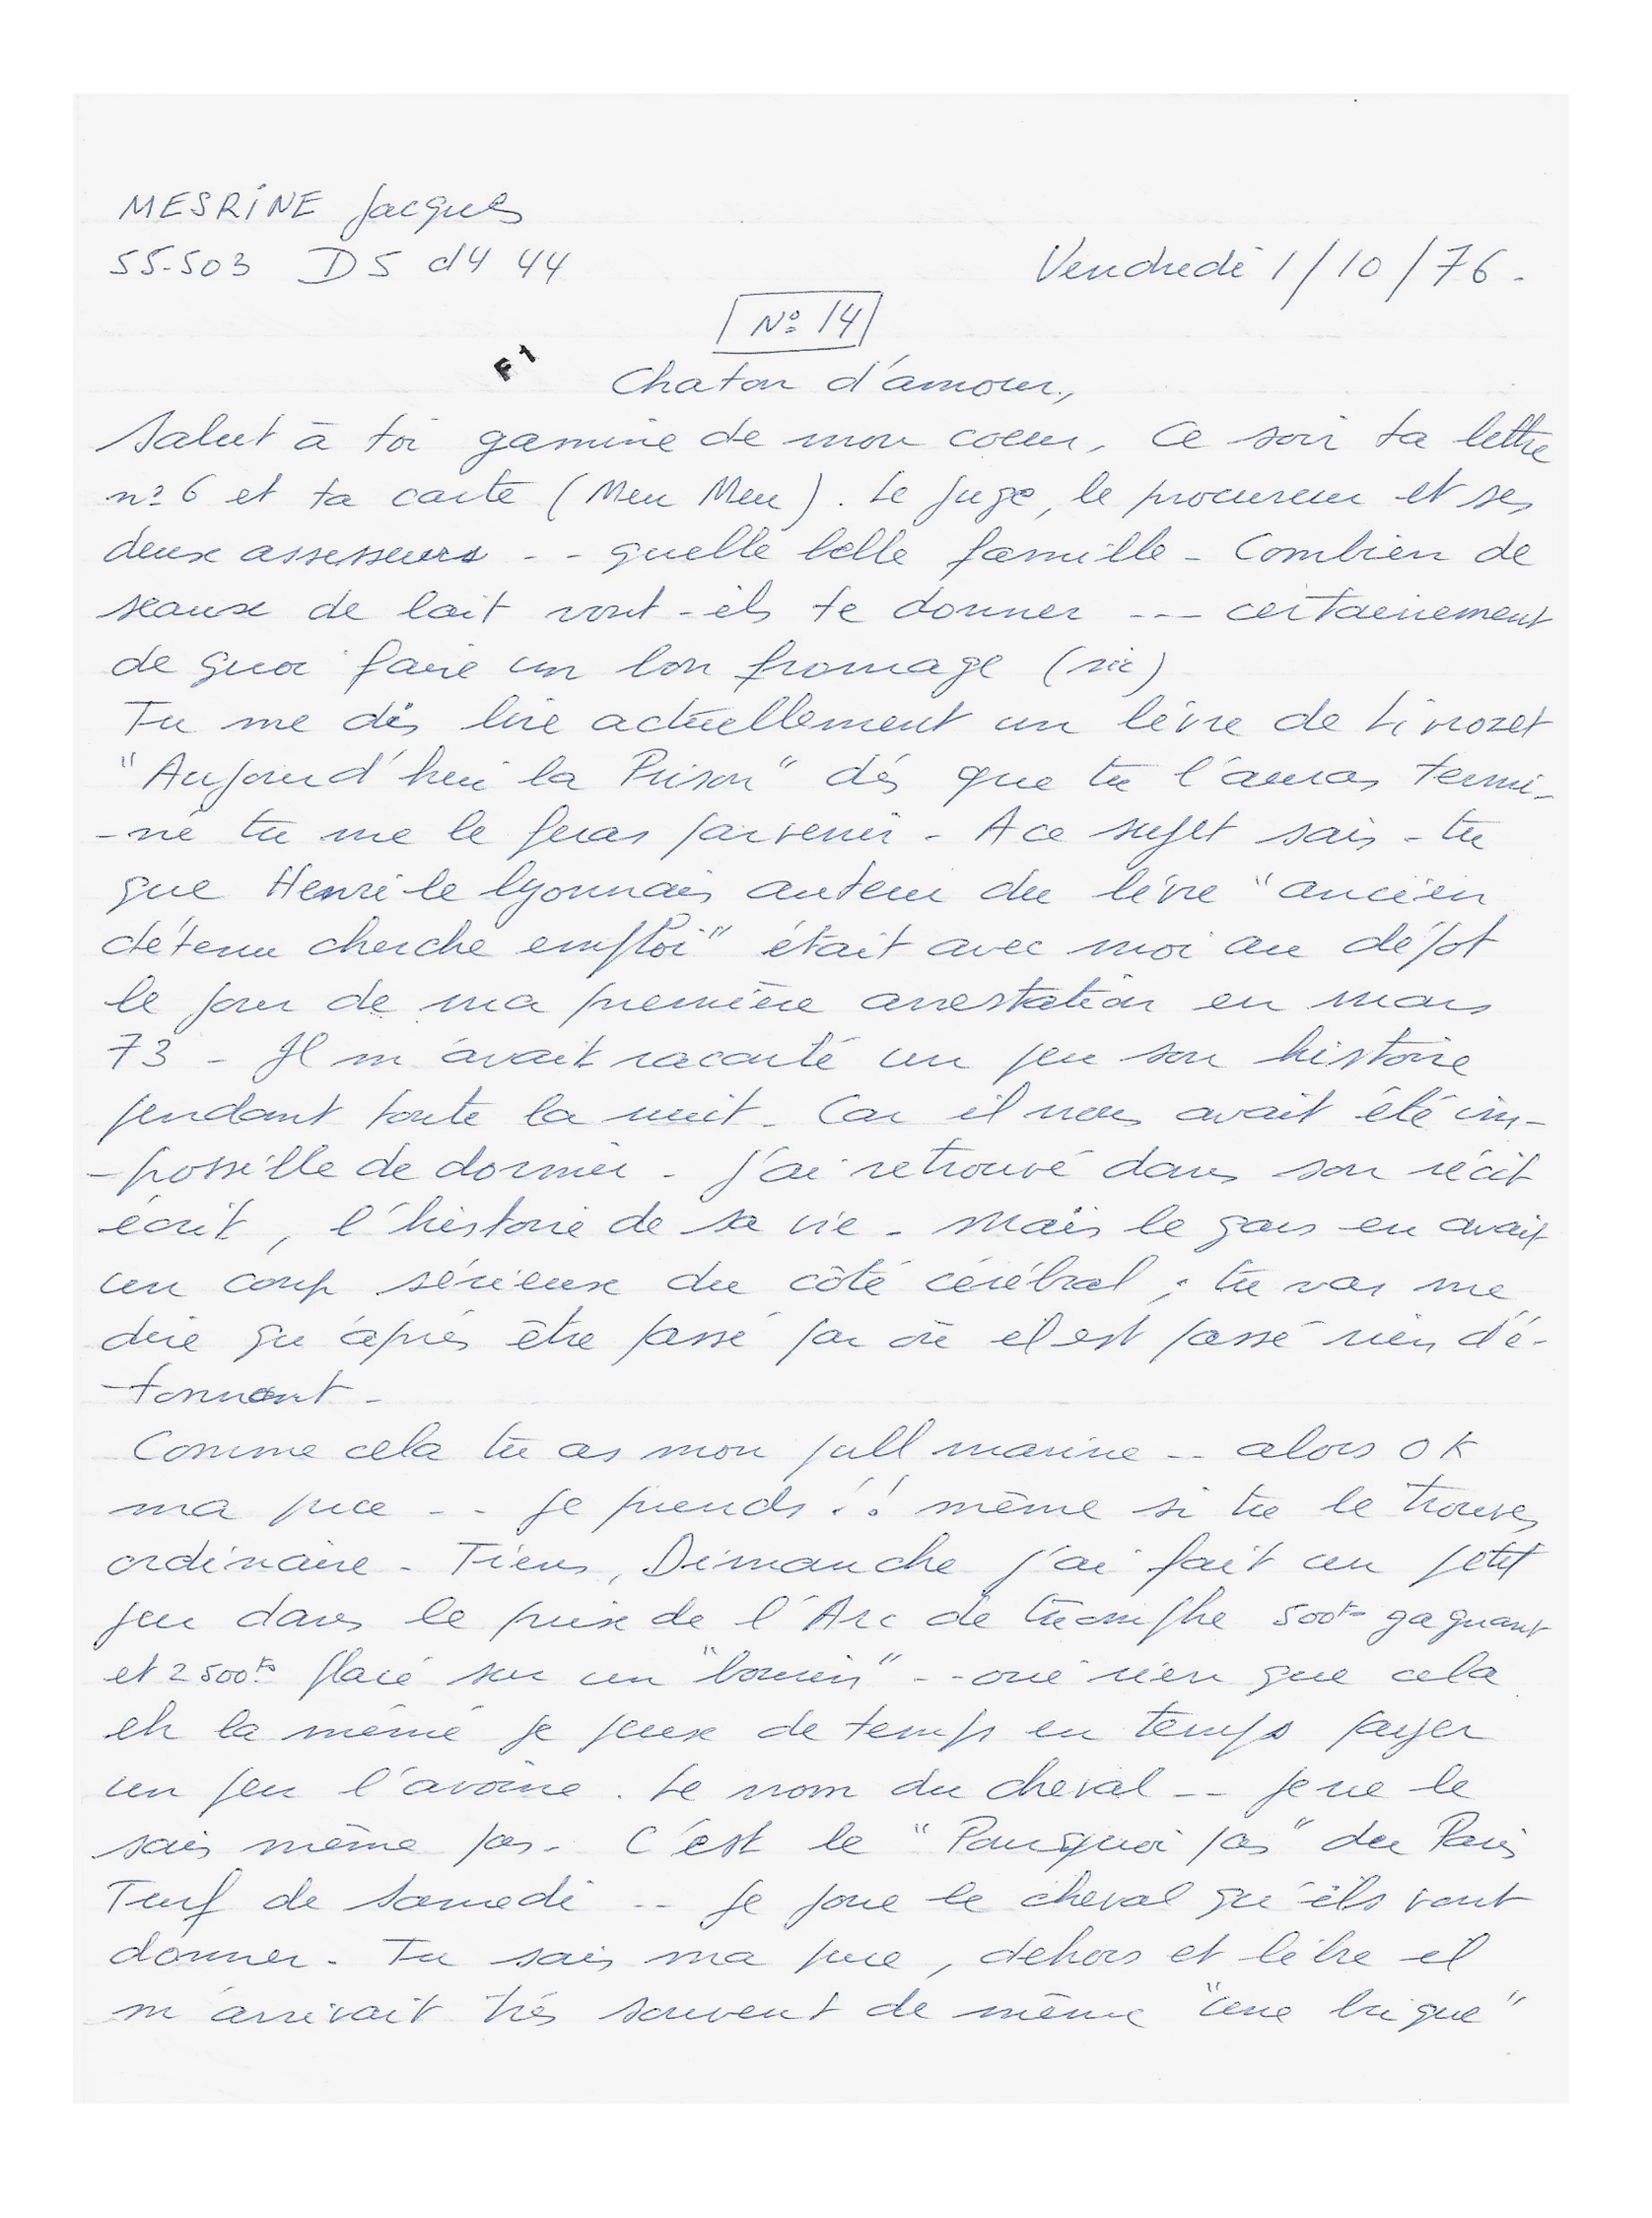 MESRINE Jacques
55-503 D5 d4 44
Vendredi 1/10/76.
N° 14
F1
Chaton d'amour,
Salut à toi gamine de mon coeur, Ce soir ta lettre
n° 6 et ta carte (Meu Meu). Le juge, le procureur et ses
deux assesseurs -- quelle belle famille - Combien de
seaux de lait vont-ils te donner --- certainement
de quoi faire un bon fromage (sic)
Tu me dis lire actuellement un livre de Livrozet
"Aujourd'hui la Prison" dés que tu l'auras termi-
-né tu me le feras parvenir - A ce sujet sais-tu
que Henri le lyonnais auteur du livre "ancien
détenu cherche emploi" était avec moi au dépot
le jour de ma première arrestation en mars
73 - Il m'avait raconté un peu son histoire
pendant toute la nuit - Car il nous avait été im-
-possible de dormir - J'ai retrouvé dans son récit
écrit, l'histoire de sa vie - Mais le gars en avait
un coup sérieux du côté cérébral ; tu vas me
dire qu'aprés être passé par où il est passé rien d'é-
-tonnant -
Comme cela tu as mon pull marine -- alors OK
ma puce -- Je prends !! même si tu le trouves
ordinaire - Tiens, Dimanche j'ai fait un petit
jeu dans le prix de l'Arc de triomphe 500frs gagnant
et 2500frs placé sur un "bourrin" -- oui rien que cela
eh la mémé je peux de temps en temps payer
un peu l'avoine. Le nom du cheval -- je ne le
sais même pas - C'est le "Pourquoi pas" du Paris
Turf de Samedi -- Je joue le cheval qu'ils vont
donner - Tu sais ma puce, dehors et libre il
m'arrivait trés souvent de même "une brique"